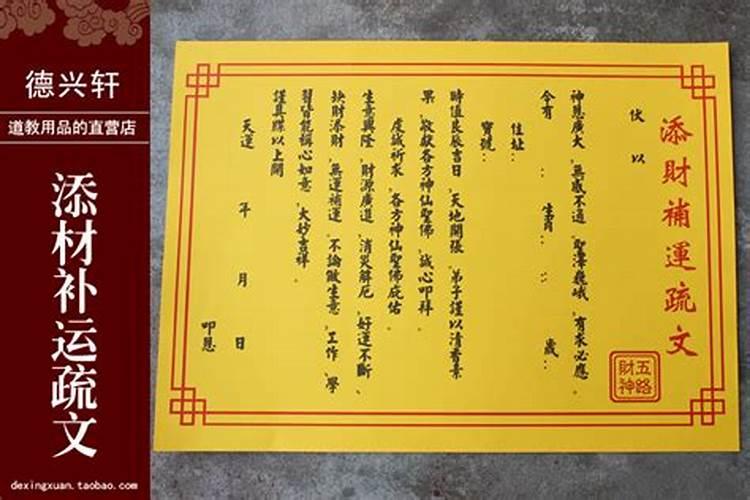 德兴轩
道教用品的直营店
添材补运疏文
dexingxuan.taobao.com
添財補運疏文
五路財神
伏以
神恩廣大、無感不通、聖澤巍峨、有求必應。
今有：生肖：：歲：
住址：
寶號：
時值良辰吉日、天地開張、弟子謹以清香素
果、敬獻各方神仙聖佛、誠心叩拜
虔誠祈求、各方神仙聖佛庇佑
生意興隆、財源廣進、消災解厄、好運不斷、
缺財添財、無運補運、不論做生意、工作、學
習皆能稱心如意、大妙吉祥。
謹具牒以上聞
天運年月日
叩恩